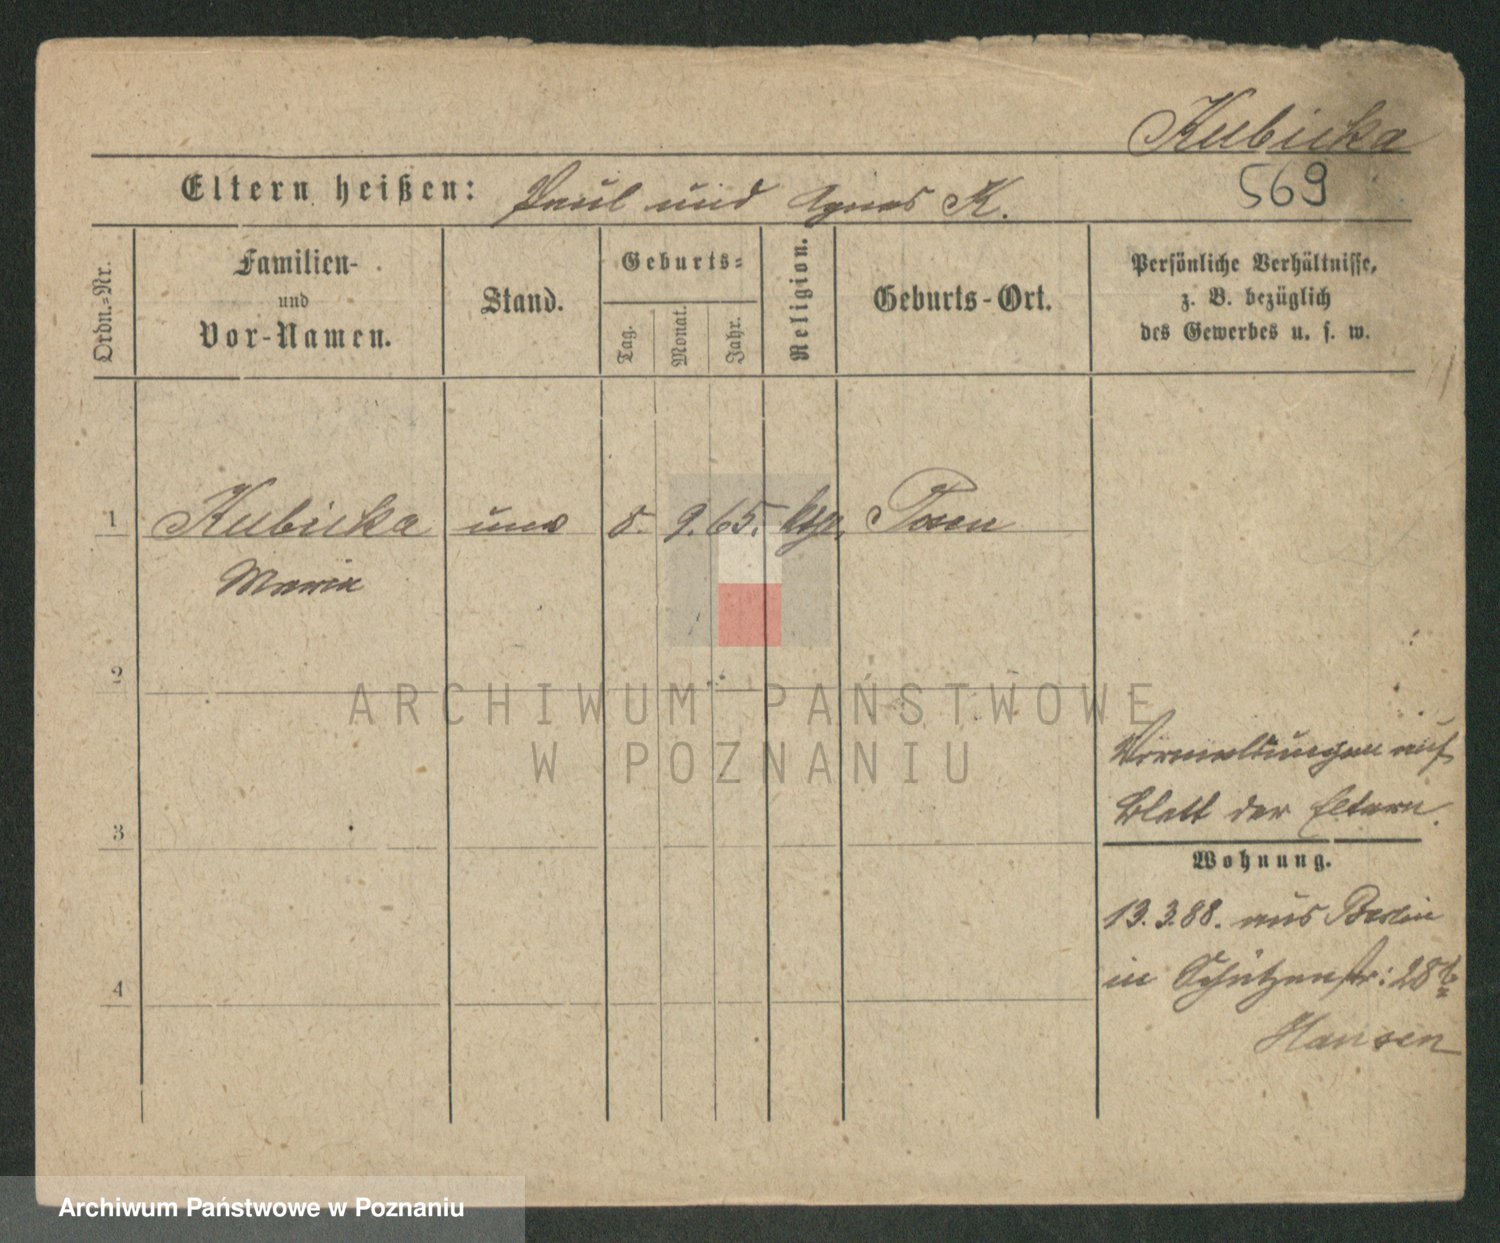 Kubicka
569
Eltern heißen: Paul und Agnes K.
Ordn.-Nr.
Familien-
und
Vor-Namen.
Stand.
Geburts-
Tag.
Monat.
Jahr.
Religion.
Geburts-Ort.
Persönliche Verhältnisse,
z. B. bezüglich
des Gewerbes u. s. w.
1 Kubicka 8. 9. 65. Posen
Maria
2
ARCHIWUM PAŃSTWOWE
W POZNANIU
Vermeldungen auf
Blatt der Eltern.
3
Wohnung.
13.3.88. aus Berlin
4 in Schützenstr: 28
Hansen
Archiwum Państwowe w Poznaniu